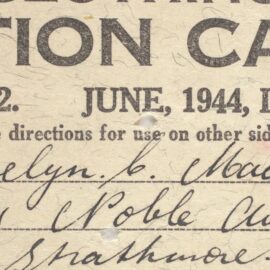 TION CA
2. JUNE, 1944, I
e directions for use on other sid
elyn. C. Mac
Noble Av
Strathmore